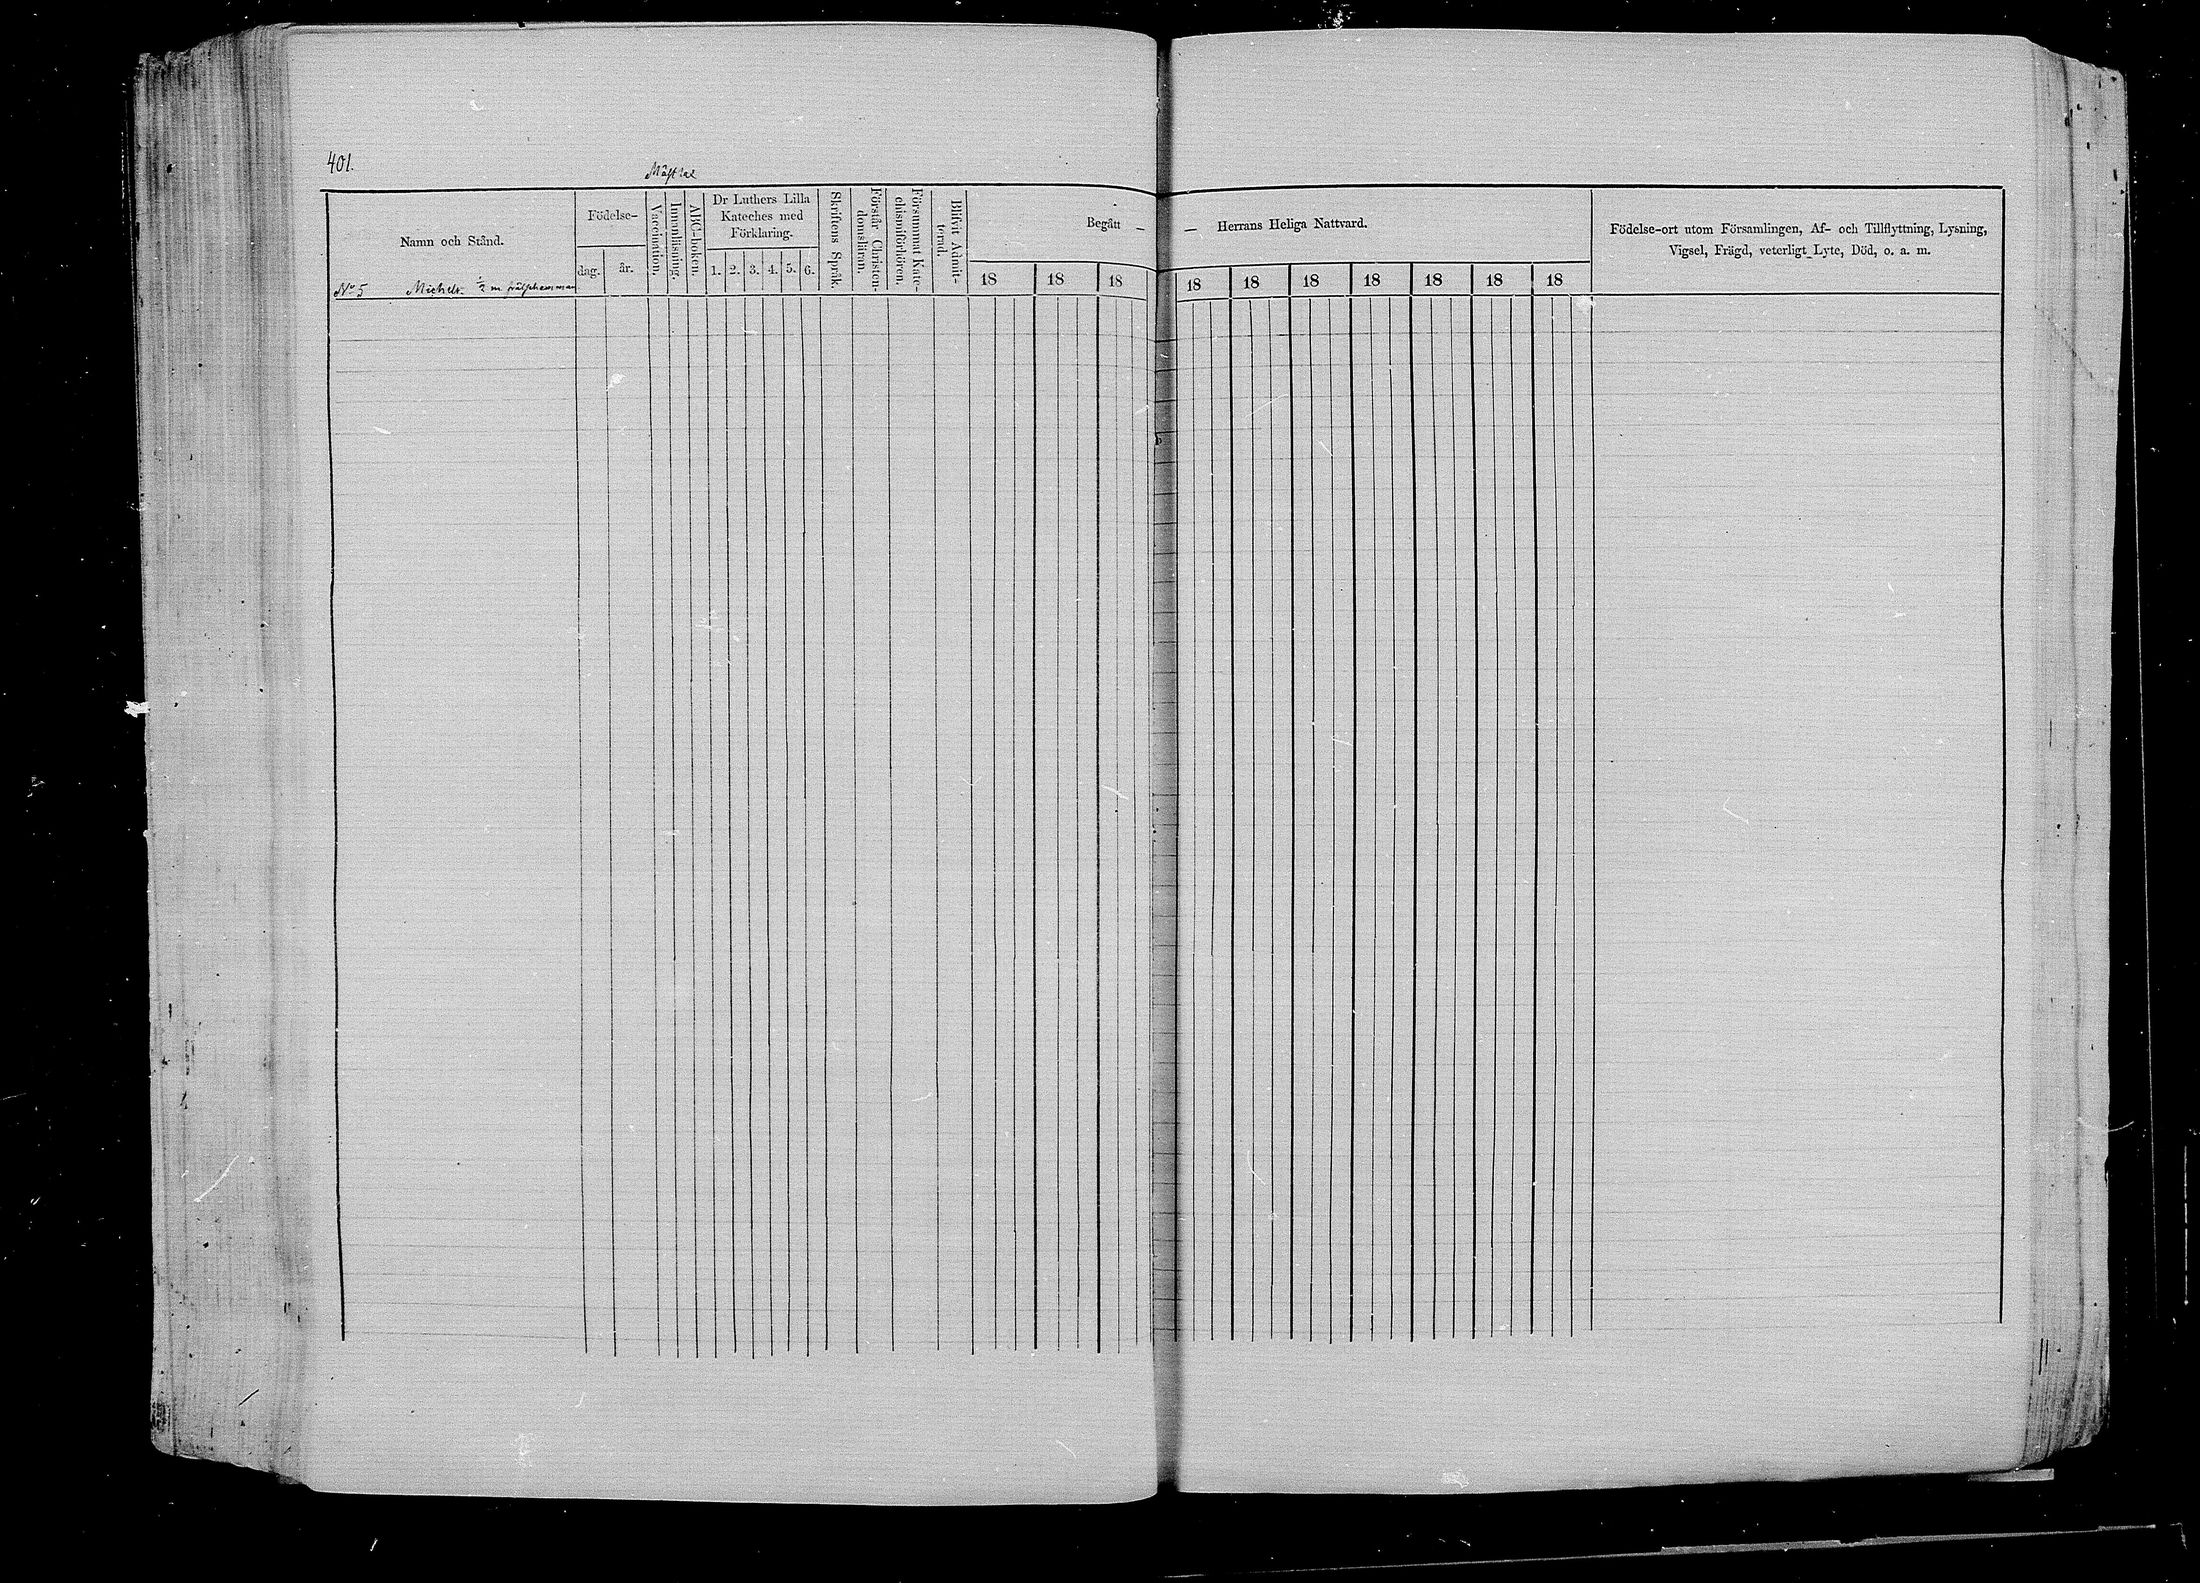 401.
Namn och Stånd.
Födelse-
dag.
år.
Vaccination.
Innanläsning.
ABC-boken.
Dr Luthers Lilla
Kateches med
Förklaring.
1. 2. 3. 4. 5. 6.
Skriftens Språk.
Förstår Christen-
domsläran.
Försummat Kate-
chismiförhören.
Blifvit Admit-
terad.
Begått —
— Herrans Heliga Nattvard.
18 18 18 18 18 18 18 18 18 18
Födelse-ort utom Församlingen, Af- och Tillflyttning, Lysning,
Vigsel, Frägd, veterligt Lyte, Död, o. a. m.
No 5 Michels ½ m frälsehemman